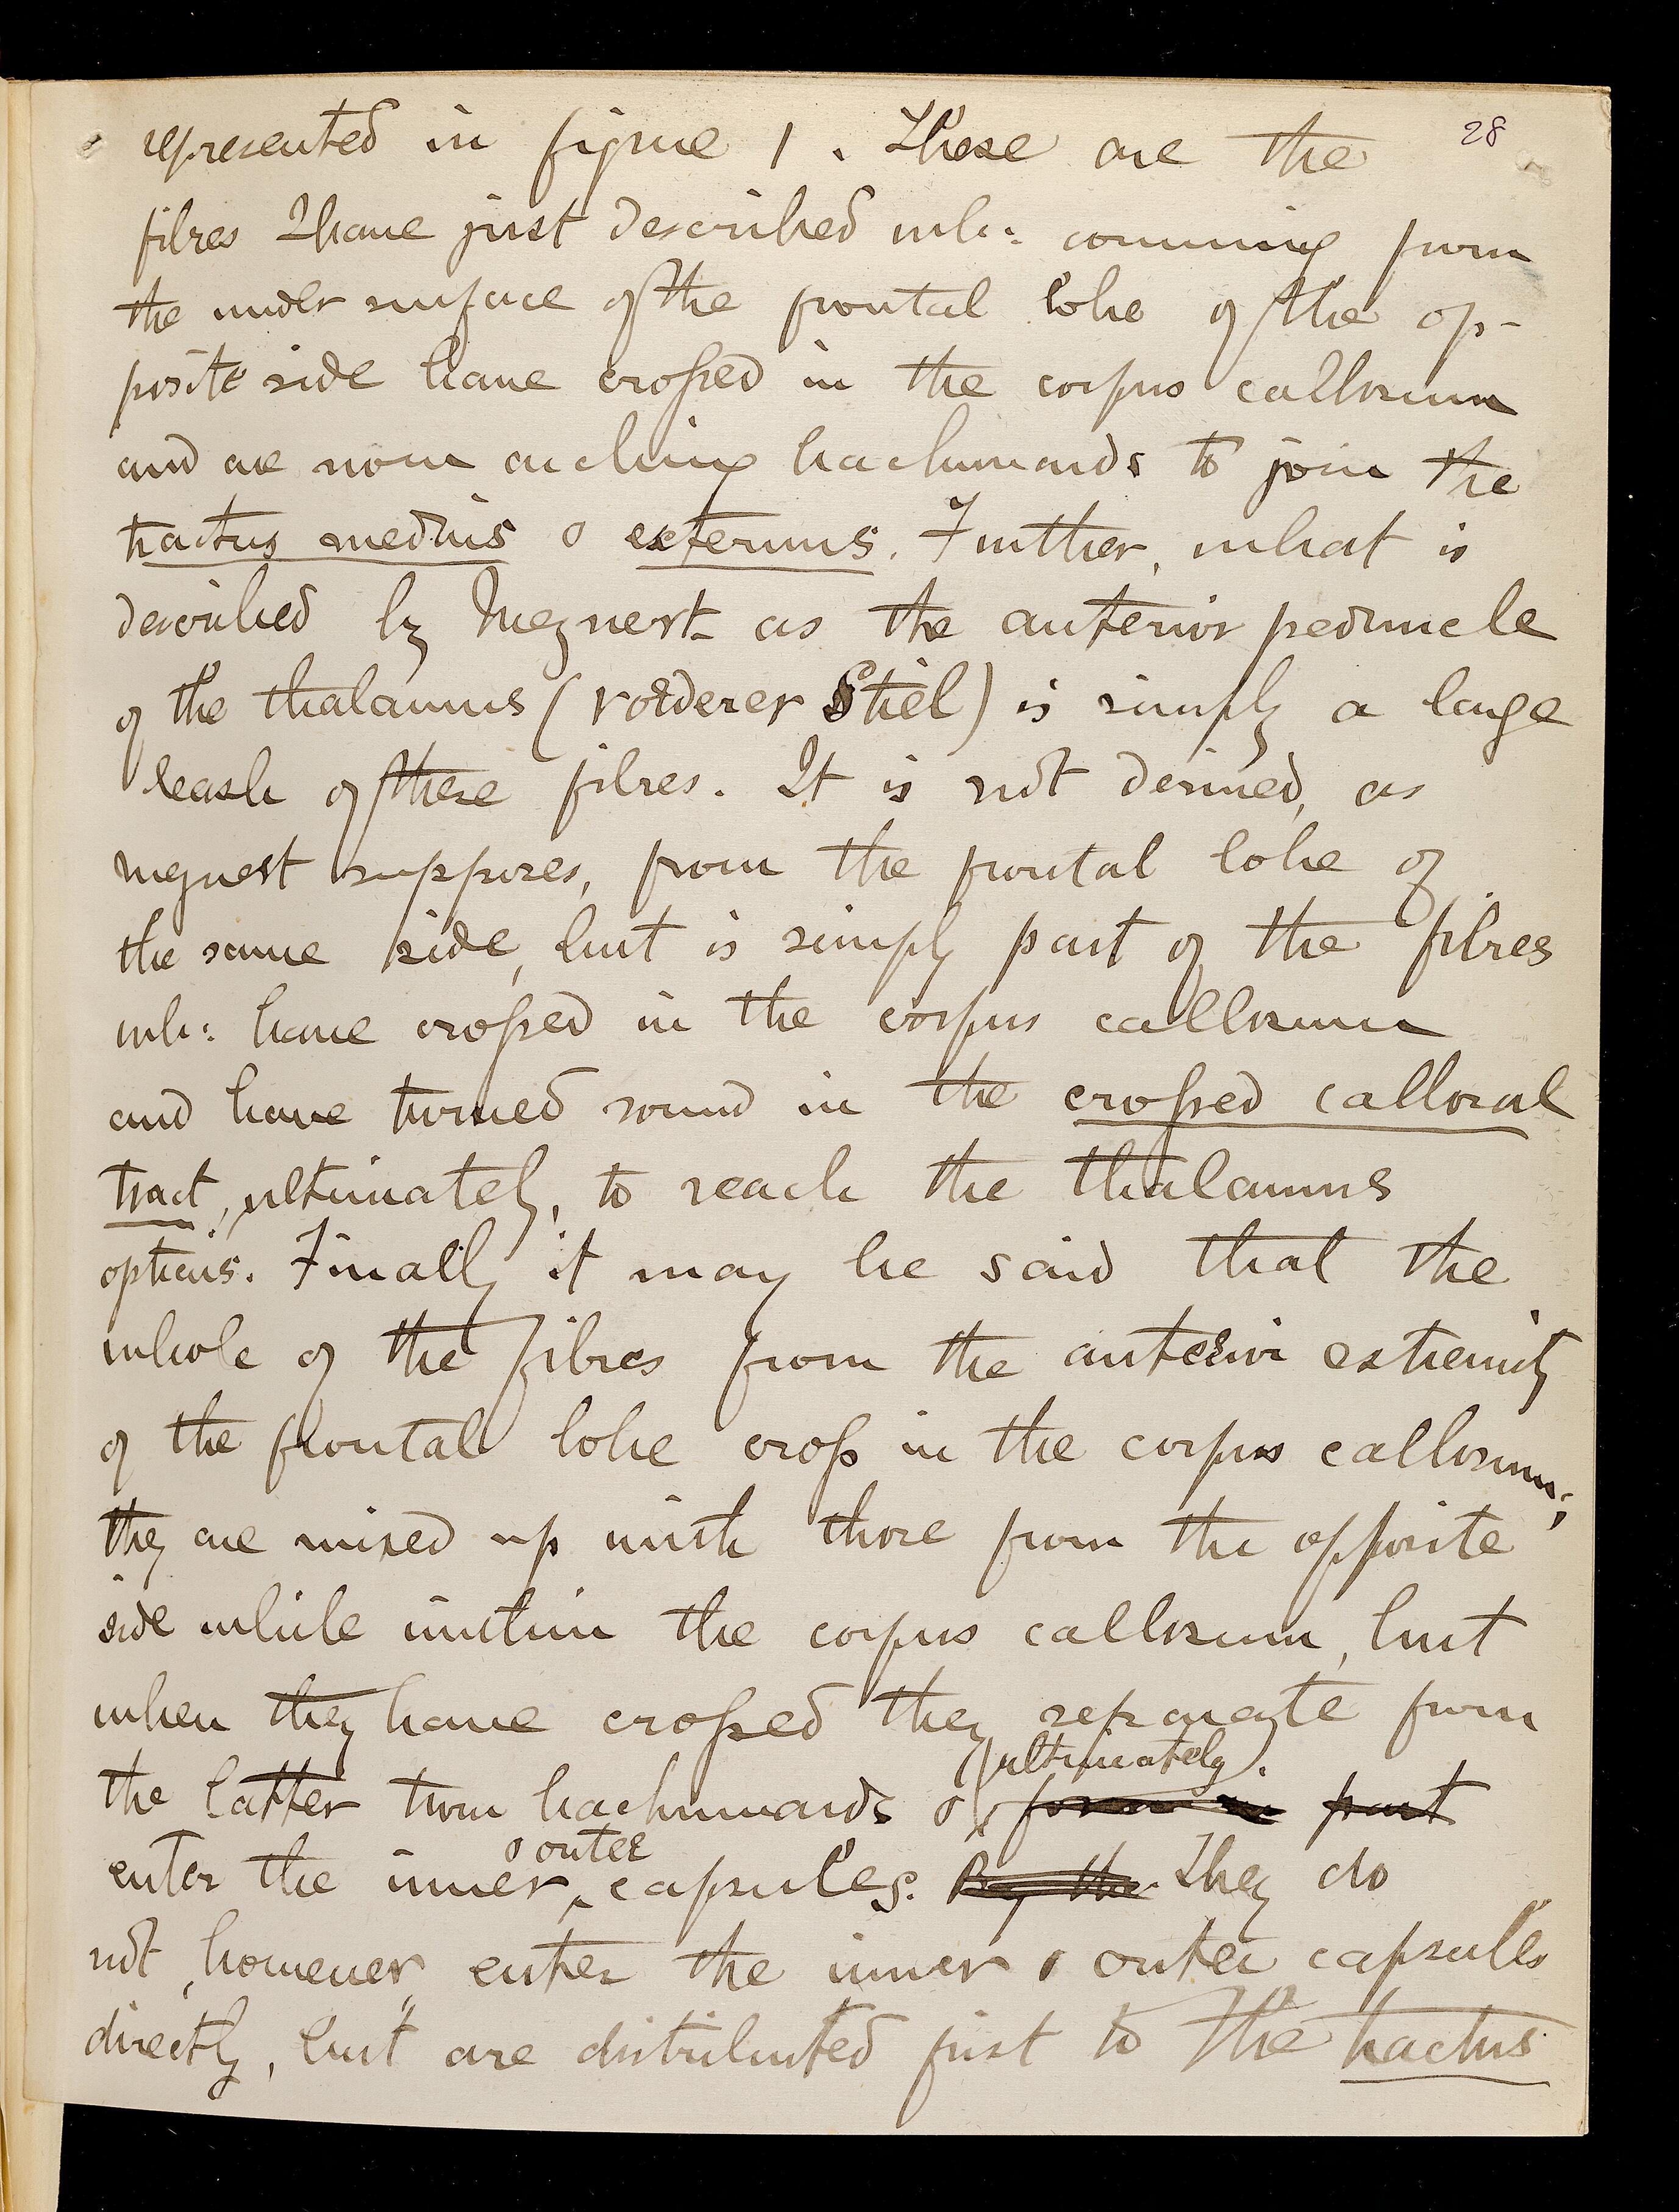 28
represented in figure 1. These are the
fibres I have just described wh: comming from
the under surface of the frontal lobe of the op-
posite side have crossed in the corpus callosum
and are now arching backwards to join the
tractus medius & externus. Further, what is
described by Meynert as the anterior peduncle
of the thalamus (vorderer Stiel) is simply a large
leash of these fibres. It is not derived, as
Meynert supposes, from the frontal lobe of
the same side, but is simply part of the fibres
wh: have crossed in the corpus callosum
and have turned round in the crossed callosal
tract, ultimately, to reach the thalamus
opticus. Finally it may be said that the
whole of the fibres from the anterior extremity
of the frontal lobe cross in the corpus callosum;
they are mixed up with those from the opposite
side while within the corpus callosum, but
when they have crossed they separate from
(ultimately).
the latter turn backwards & form in part
& outer
enter the inner ‸ capsules. By the They do
not, however, enter the inner & outer capsules
directly, but are distributed first to the tractus